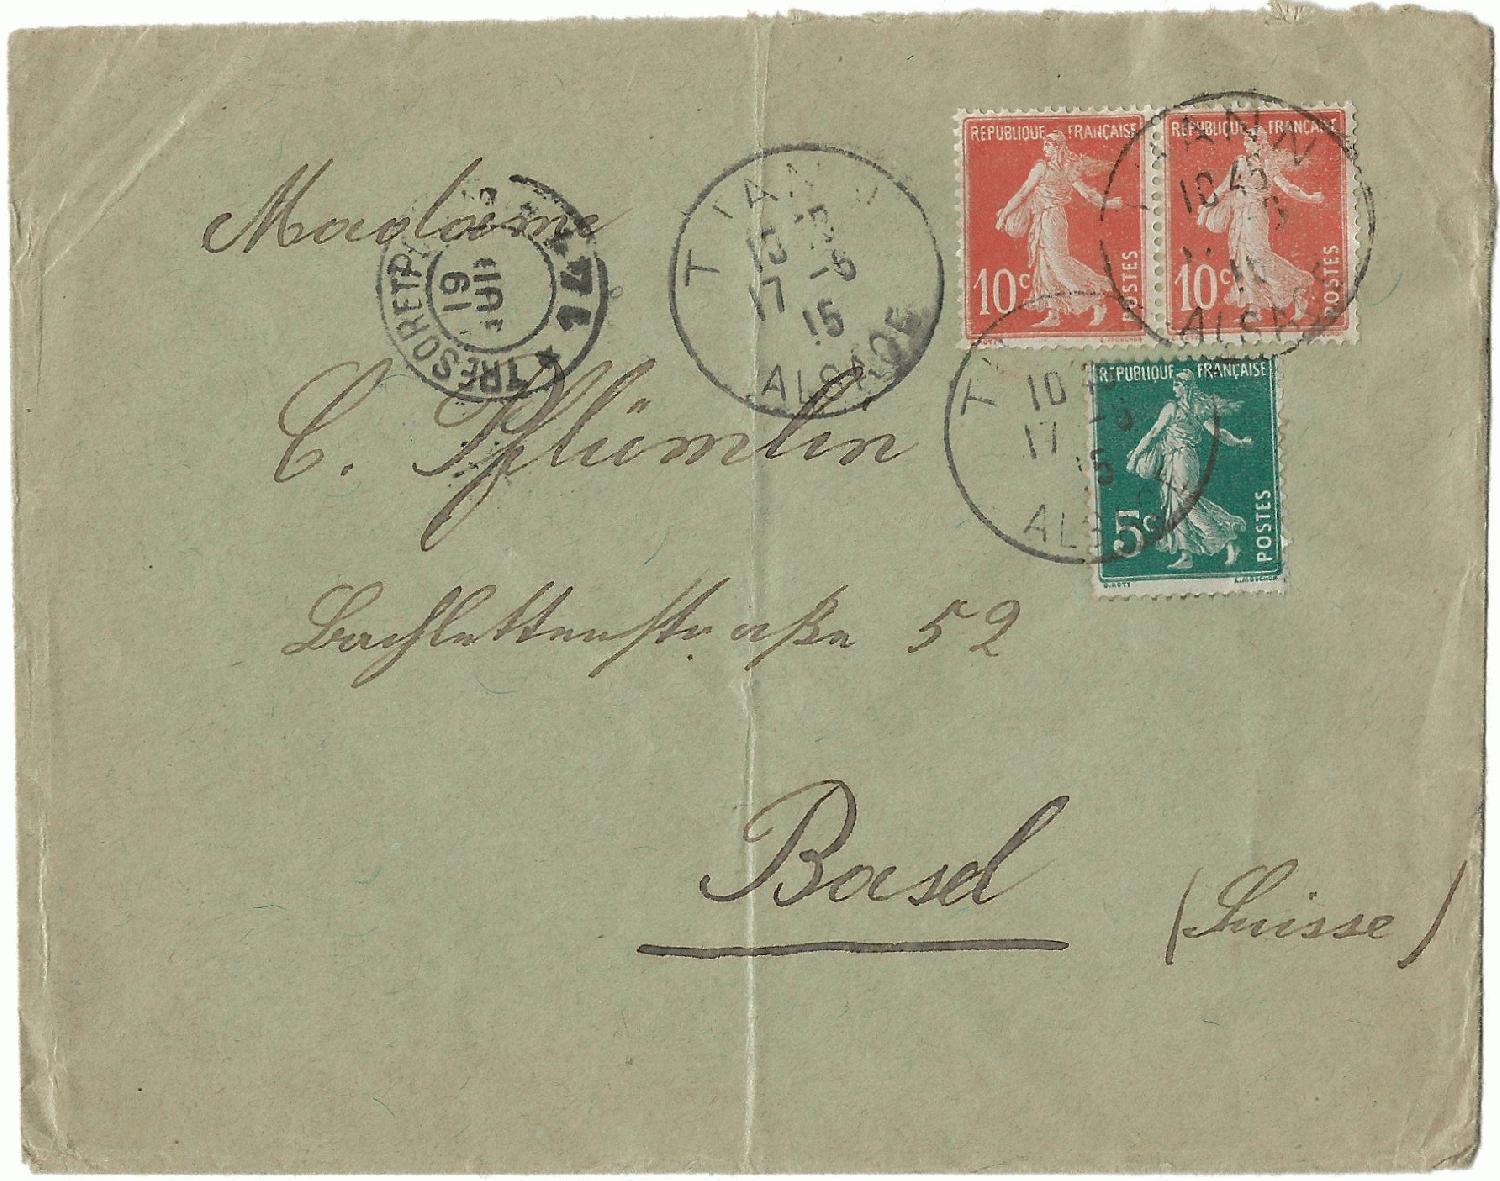 Madame
C. Pflümlin
Bachlettenstraße 52
Basel
(Suisse)
THANN
10 45
17 -6
15
ALSACE
TRESOR ET POSTES
19
JUIN
★ 14
REPUBLIQUE FRANÇAISE
10c
POSTES
REPUBLIQUE FRANÇAISE
10c
POSTES
THANN
10 45
ALSACE
REPUBLIQUE FRANÇAISE
5c
POSTES
10 45
17 -6
15
ALSACE